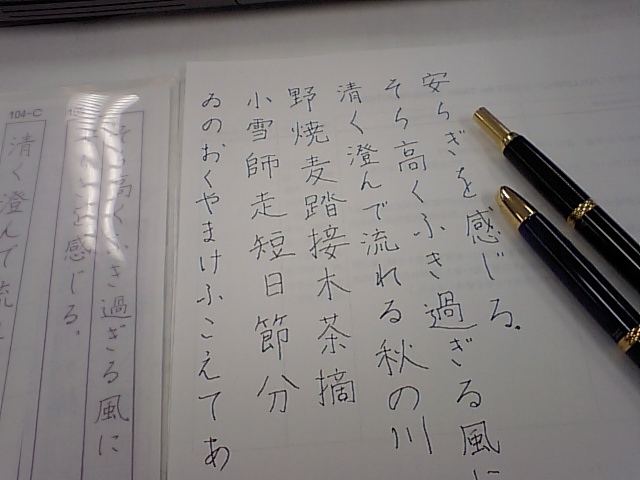 安らぎを感じる。
そら高くふき過ぎる風に
清く澄んで流れる秋の川
野焼麦踏接木茶摘
小雪師走短日節分
ゐのおくやまけふこえてあ
そら高くふき過ぎる風に
を感じる。
104-C
清く澄んで流